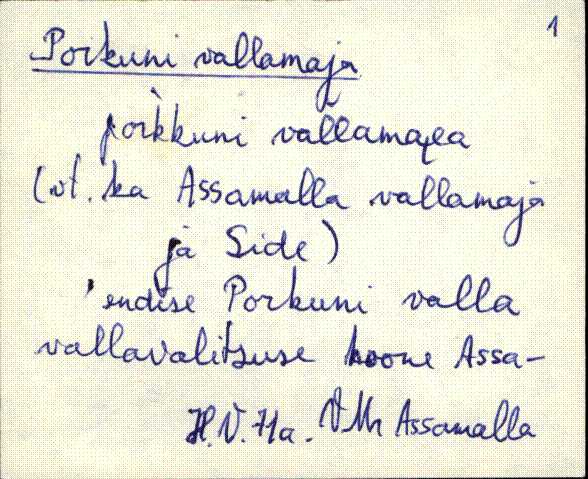 1
Porkuni vallamaja
porkkuni vallamaea
(vt. ka Assamalla vallamaja
ja Side)
'endise Porkuni valla
vallavalitsuse hoone Assa-
H.V.Ha. VMr Assamalla